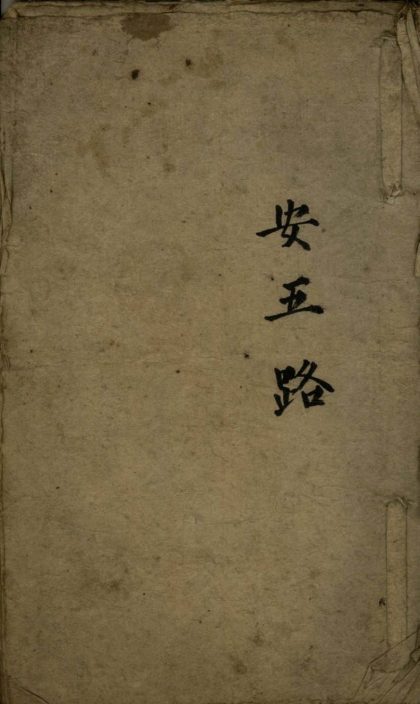 安五路